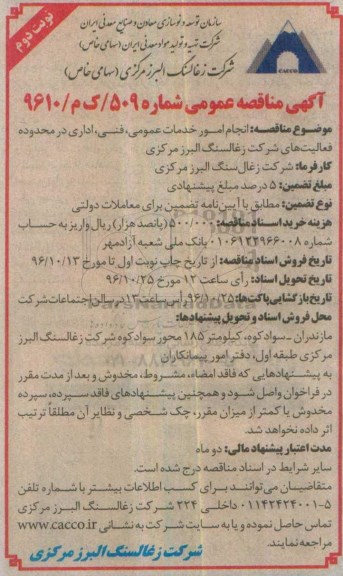 نوبت دوم
سازمان توسعه و نوسازی معادن و صنایع معدنی ایران
شرکت تهیه و تولید مواد معدنی ایران (سهامی خاص)
شرکت زغالسنگ البرز مرکزی (سهامی خاص)
CACCO
آگهی مناقصه عمومی شماره ۵۰۹/ک م/۹۶۱۰
موضوع مناقصه: انجام امور خدمات عمومی، فنی، اداری در محدوده
فعالیت‌های شرکت زغالسنگ البرز مرکزی
کارفرما: شرکت زغال‌سنگ البرز مرکزی
مبلغ تضمین: ۵ درصد مبلغ پیشنهادی
نوع تضمین: مطابق با آیین‌نامه تضمین برای معاملات دولتی
هزینه خرید اسناد مناقصه: ۵۰۰/۰۰۰ (پانصد هزار) ریال واریز به حساب
شماره ۰۱۰۶۱۲۲۹۶۶۰۰۸ بانک ملی شعبه آزادمهر
تاریخ فروش اسناد مناقصه: از تاریخ چاپ نوبت اول تا مورخ ۹۶/۱۰/۱۳
تاریخ تحویل اسناد: رأی ساعت ۱۲ مورخ ۹۶/۱۰/۲۵
تاریخ بازگشایی پاکت‌ها: ۹۶/۱۰/۲۵ رأس ساعت ۱۳ در سالن اجتماعات شرکت
محل فروش اسناد و تحویل پیشنهادها:
مازندران ـ سوادکوه، کیلومتر ۱۸۵ محور سوادکوه شرکت زغالسنگ البرز
مرکزی طبقه اول، دفتر امور پیمانکاران
به پیشنهادهایی که فاقد امضاء، مشروط، مخدوش و بعد از مدت مقرر
در فراخوان واصل شود و همچنین پیشنهادهای فاقد سپرده، سپرده
مخدوش یا کمتر از میزان مقرر، چک شخصی و نظایر آن مطلقاً ترتیب
اثر داده نخواهد شد.
مدت اعتبار پیشنهاد مالی: دو ماه
سایر شرایط در اسناد مناقصه درج شده است.
متقاضیان می‌توانند برای کسب اطلاعات بیشتر با شماره تلفن
۰۱۱۴۲۴۲۴۰۰۱-۵ داخلی ۲۲۴ شرکت زغالسنگ البرز مرکزی
تماس حاصل نموده و یا به سایت شرکت به نشانی www.cacco.ir
مراجعه نمایند.
شرکت زغالسنگ البرز مرکزی